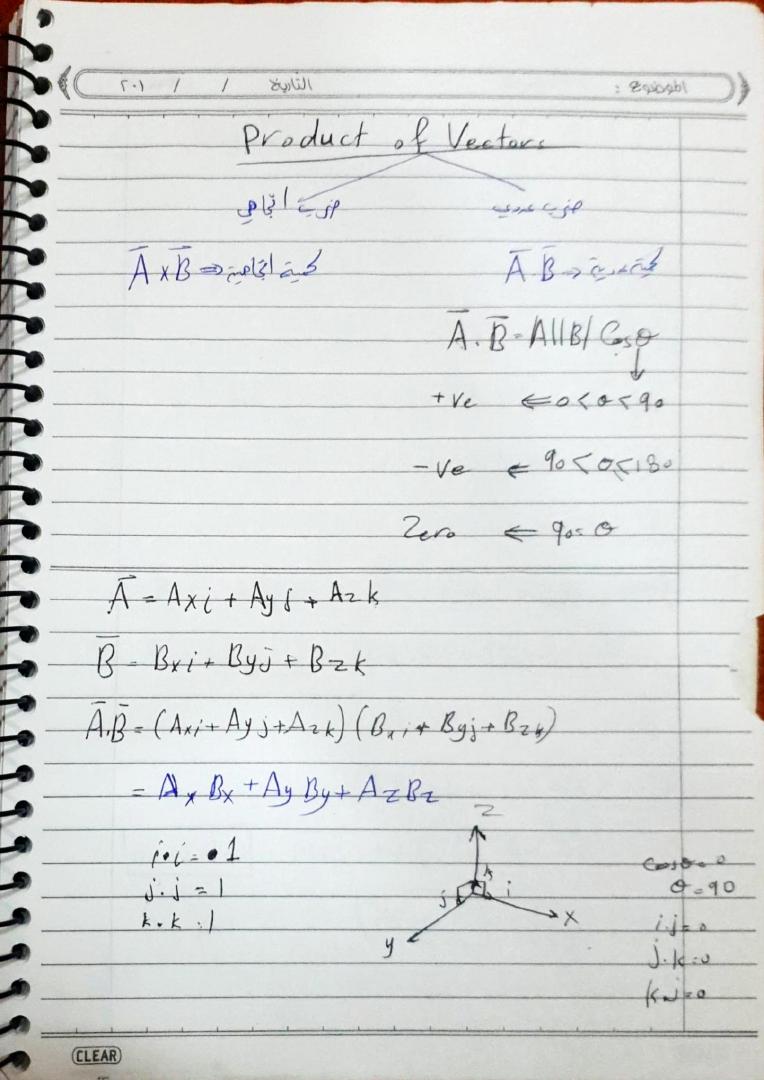 الموضوع : التاريخ / / ٢٠١
Product of Vectors
ضرب اتجاهي ضرب عددي
A̅ × B̅ ⇒ كمية اتجاهية A̅ . B̅ → كمية عددية
A̅ . B̅ = |A||B| Cosθ
↓
+ve ⇐ 0<θ<90
-ve ⇐ 90<θ<180
Zero ⇐ 90=θ
A̅ = Axi + Ayj + Azk
B̅ = Bxi + Byj + Bzk
A̅.B̅ = (Axi + Ayj + Azk) (Bxi + Byj + Bzk)
= Ax Bx + Ay By + Az Bz
i.i = 1
j.j = 1
k.k = 1
z
k
j i
x
y
Cosθ = 0
θ = 90
i.j = 0
j.k = 0
k.i = 0
CLEAR